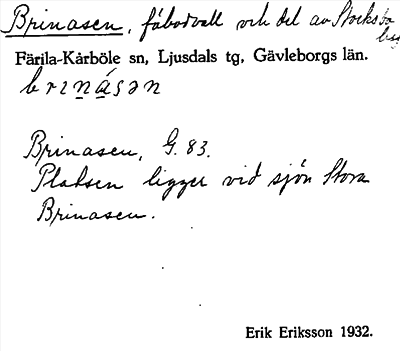 Brinasen, fäbodvall och del av Stocksbo
Färila-Kårböle sn, Ljusdals tg, Gävleborgs län.
brɪnásən
Brinasen, G. 83.
Platsen ligger vid sjön Stora
Brinasen.
Erik Eriksson 1932.